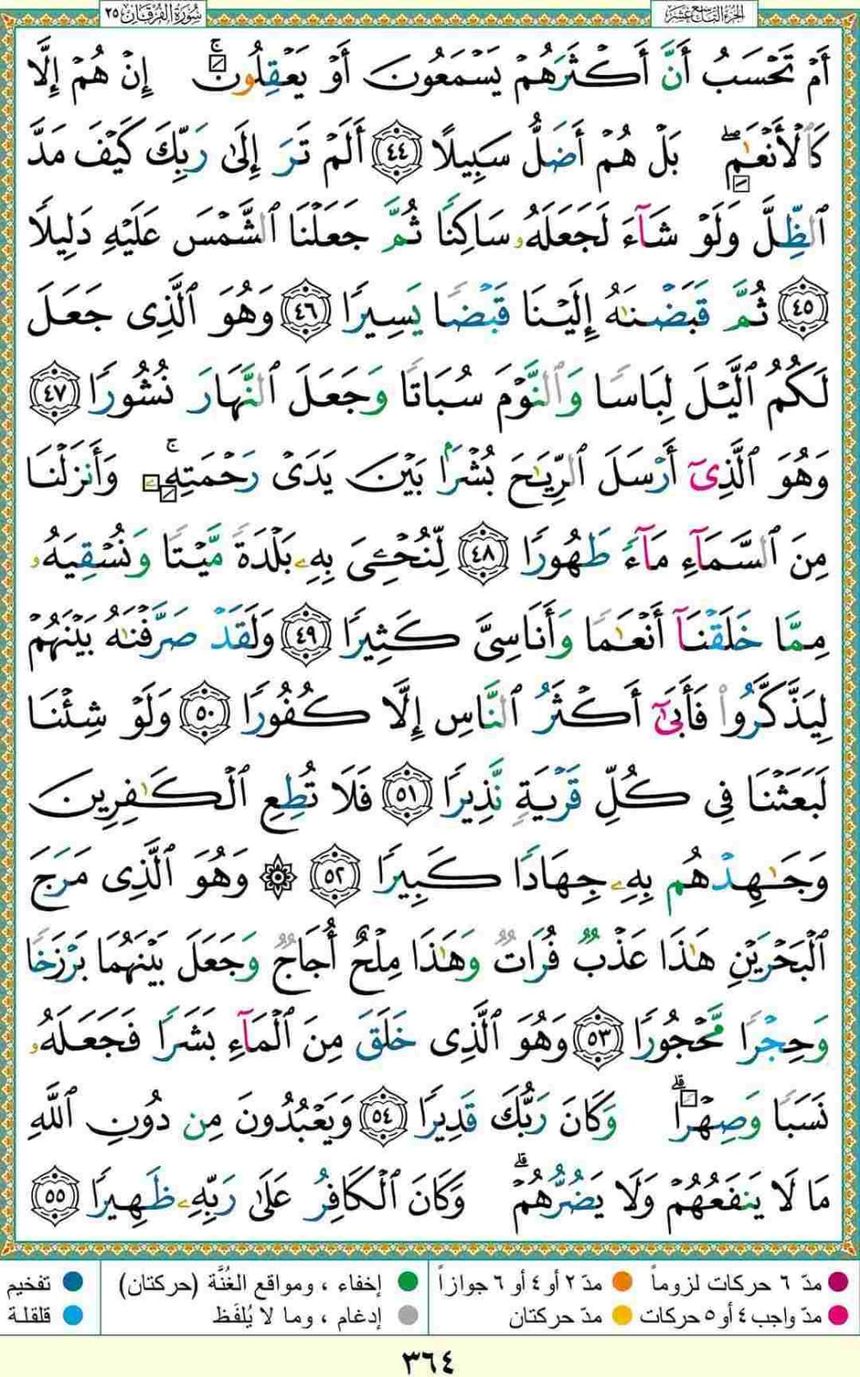 الجزء التاسع عشر
سورة الفرقان ٢٥
أَمْ تَحْسَبُ أَنَّ أَكْثَرَهُمْ يَسْمَعُونَ أَوْ يَعْقِلُونَ ۚ إِنْ هُمْ إِلَّا
كَالْأَنْعَٰمِ ۖ بَلْ هُمْ أَضَلُّ سَبِيلًا ٤٤ أَلَمْ تَرَ إِلَىٰ رَبِّكَ كَيْفَ مَدَّ
ٱلظِّلَّ وَلَوْ شَآءَ لَجَعَلَهُۥ سَاكِنًا ثُمَّ جَعَلْنَا ٱلشَّمْسَ عَلَيْهِ دَلِيلًا
٤٥ ثُمَّ قَبَضْنَٰهُ إِلَيْنَا قَبْضًا يَسِيرًا ٤٦ وَهُوَ ٱلَّذِى جَعَلَ
لَكُمُ ٱلَّيْلَ لِبَاسًا وَٱلنَّوْمَ سُبَاتًا وَجَعَلَ ٱلنَّهَارَ نُشُورًا ٤٧
وَهُوَ ٱلَّذِىٓ أَرْسَلَ ٱلرِّيَٰحَ بُشْرًۢا بَيْنَ يَدَىْ رَحْمَتِهِۦ ۚ وَأَنزَلْنَا
مِنَ ٱلسَّمَآءِ مَآءً طَهُورًا ٤٨ لِّنُحْـِۧىَ بِهِۦ بَلْدَةً مَّيْتًا وَنُسْقِيَهُۥ
مِمَّا خَلَقْنَآ أَنْعَٰمًا وَأَنَاسِىَّ كَثِيرًا ٤٩ وَلَقَدْ صَرَّفْنَٰهُ بَيْنَهُمْ
لِيَذَّكَّرُوا۟ فَأَبَىٰٓ أَكْثَرُ ٱلنَّاسِ إِلَّا كُفُورًا ٥٠ وَلَوْ شِئْنَا
لَبَعَثْنَا فِى كُلِّ قَرْيَةٍ نَّذِيرًا ٥١ فَلَا تُطِعِ ٱلْكَٰفِرِينَ
وَجَٰهِدْهُم بِهِۦ جِهَادًا كَبِيرًا ٥٢ ۞ وَهُوَ ٱلَّذِى مَرَجَ
ٱلْبَحْرَيْنِ هَٰذَا عَذْبٌ فُرَاتٌ وَهَٰذَا مِلْحٌ أُجَاجٌ وَجَعَلَ بَيْنَهُمَا بَرْزَخًا
وَحِجْرًا مَّحْجُورًا ٥٣ وَهُوَ ٱلَّذِى خَلَقَ مِنَ ٱلْمَآءِ بَشَرًا فَجَعَلَهُۥ
نَسَبًا وَصِهْرًا ۗ وَكَانَ رَبُّكَ قَدِيرًا ٥٤ وَيَعْبُدُونَ مِن دُونِ ٱللَّهِ
مَا لَا يَنفَعُهُمْ وَلَا يَضُرُّهُمْ ۗ وَكَانَ ٱلْكَافِرُ عَلَىٰ رَبِّهِۦ ظَهِيرًا ٥٥
مدّ ٦ حركات لزوماً مدّ ٢ أو ٤ أو ٦ جوازاً إخفاء ، ومواقع الغُنَّة (حركتان) تفخيم
مدّ واجب ٤ أو ٥ حركات مدّ حركتان إدغام ، وما لا يُلفَظ قلقلة
٣٦٤